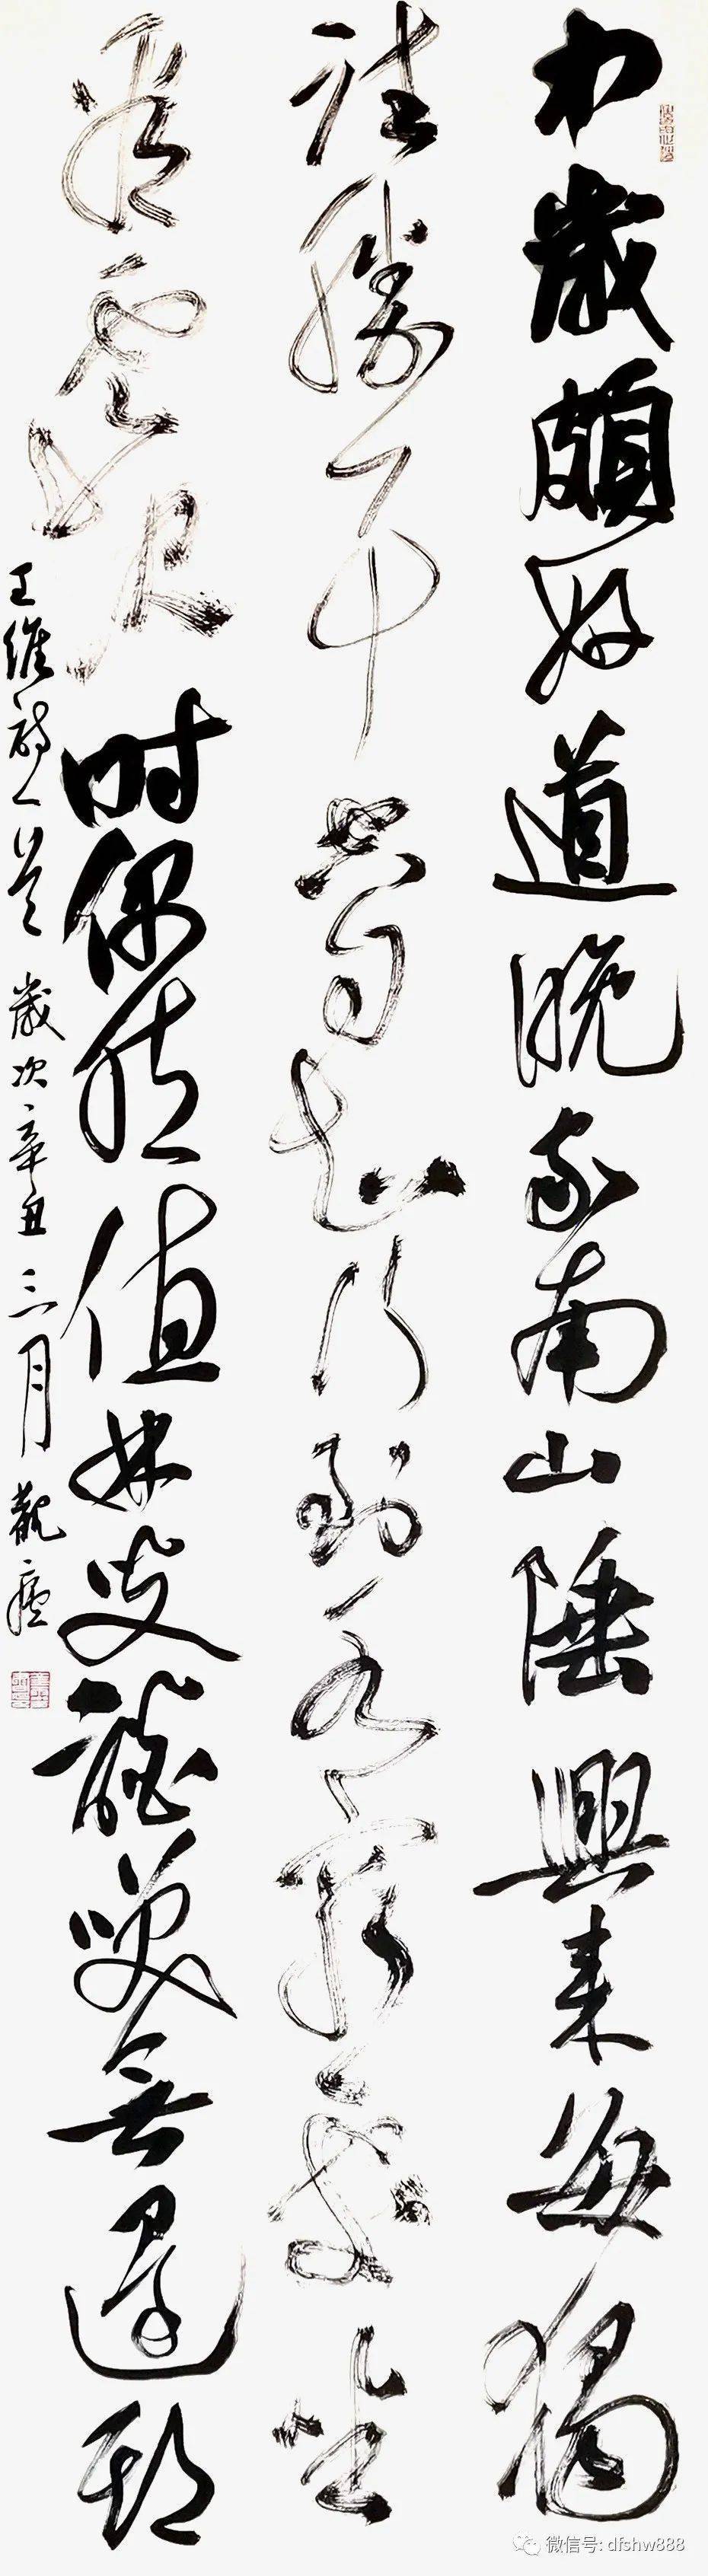 中歲頗好道晚家南山陲興來每獨
往勝事空自知行到水窮處坐
看雲起时偶然值林叟談咲無還期
王維詩一首 歲次辛丑三月 觀
微信号: dfshw888